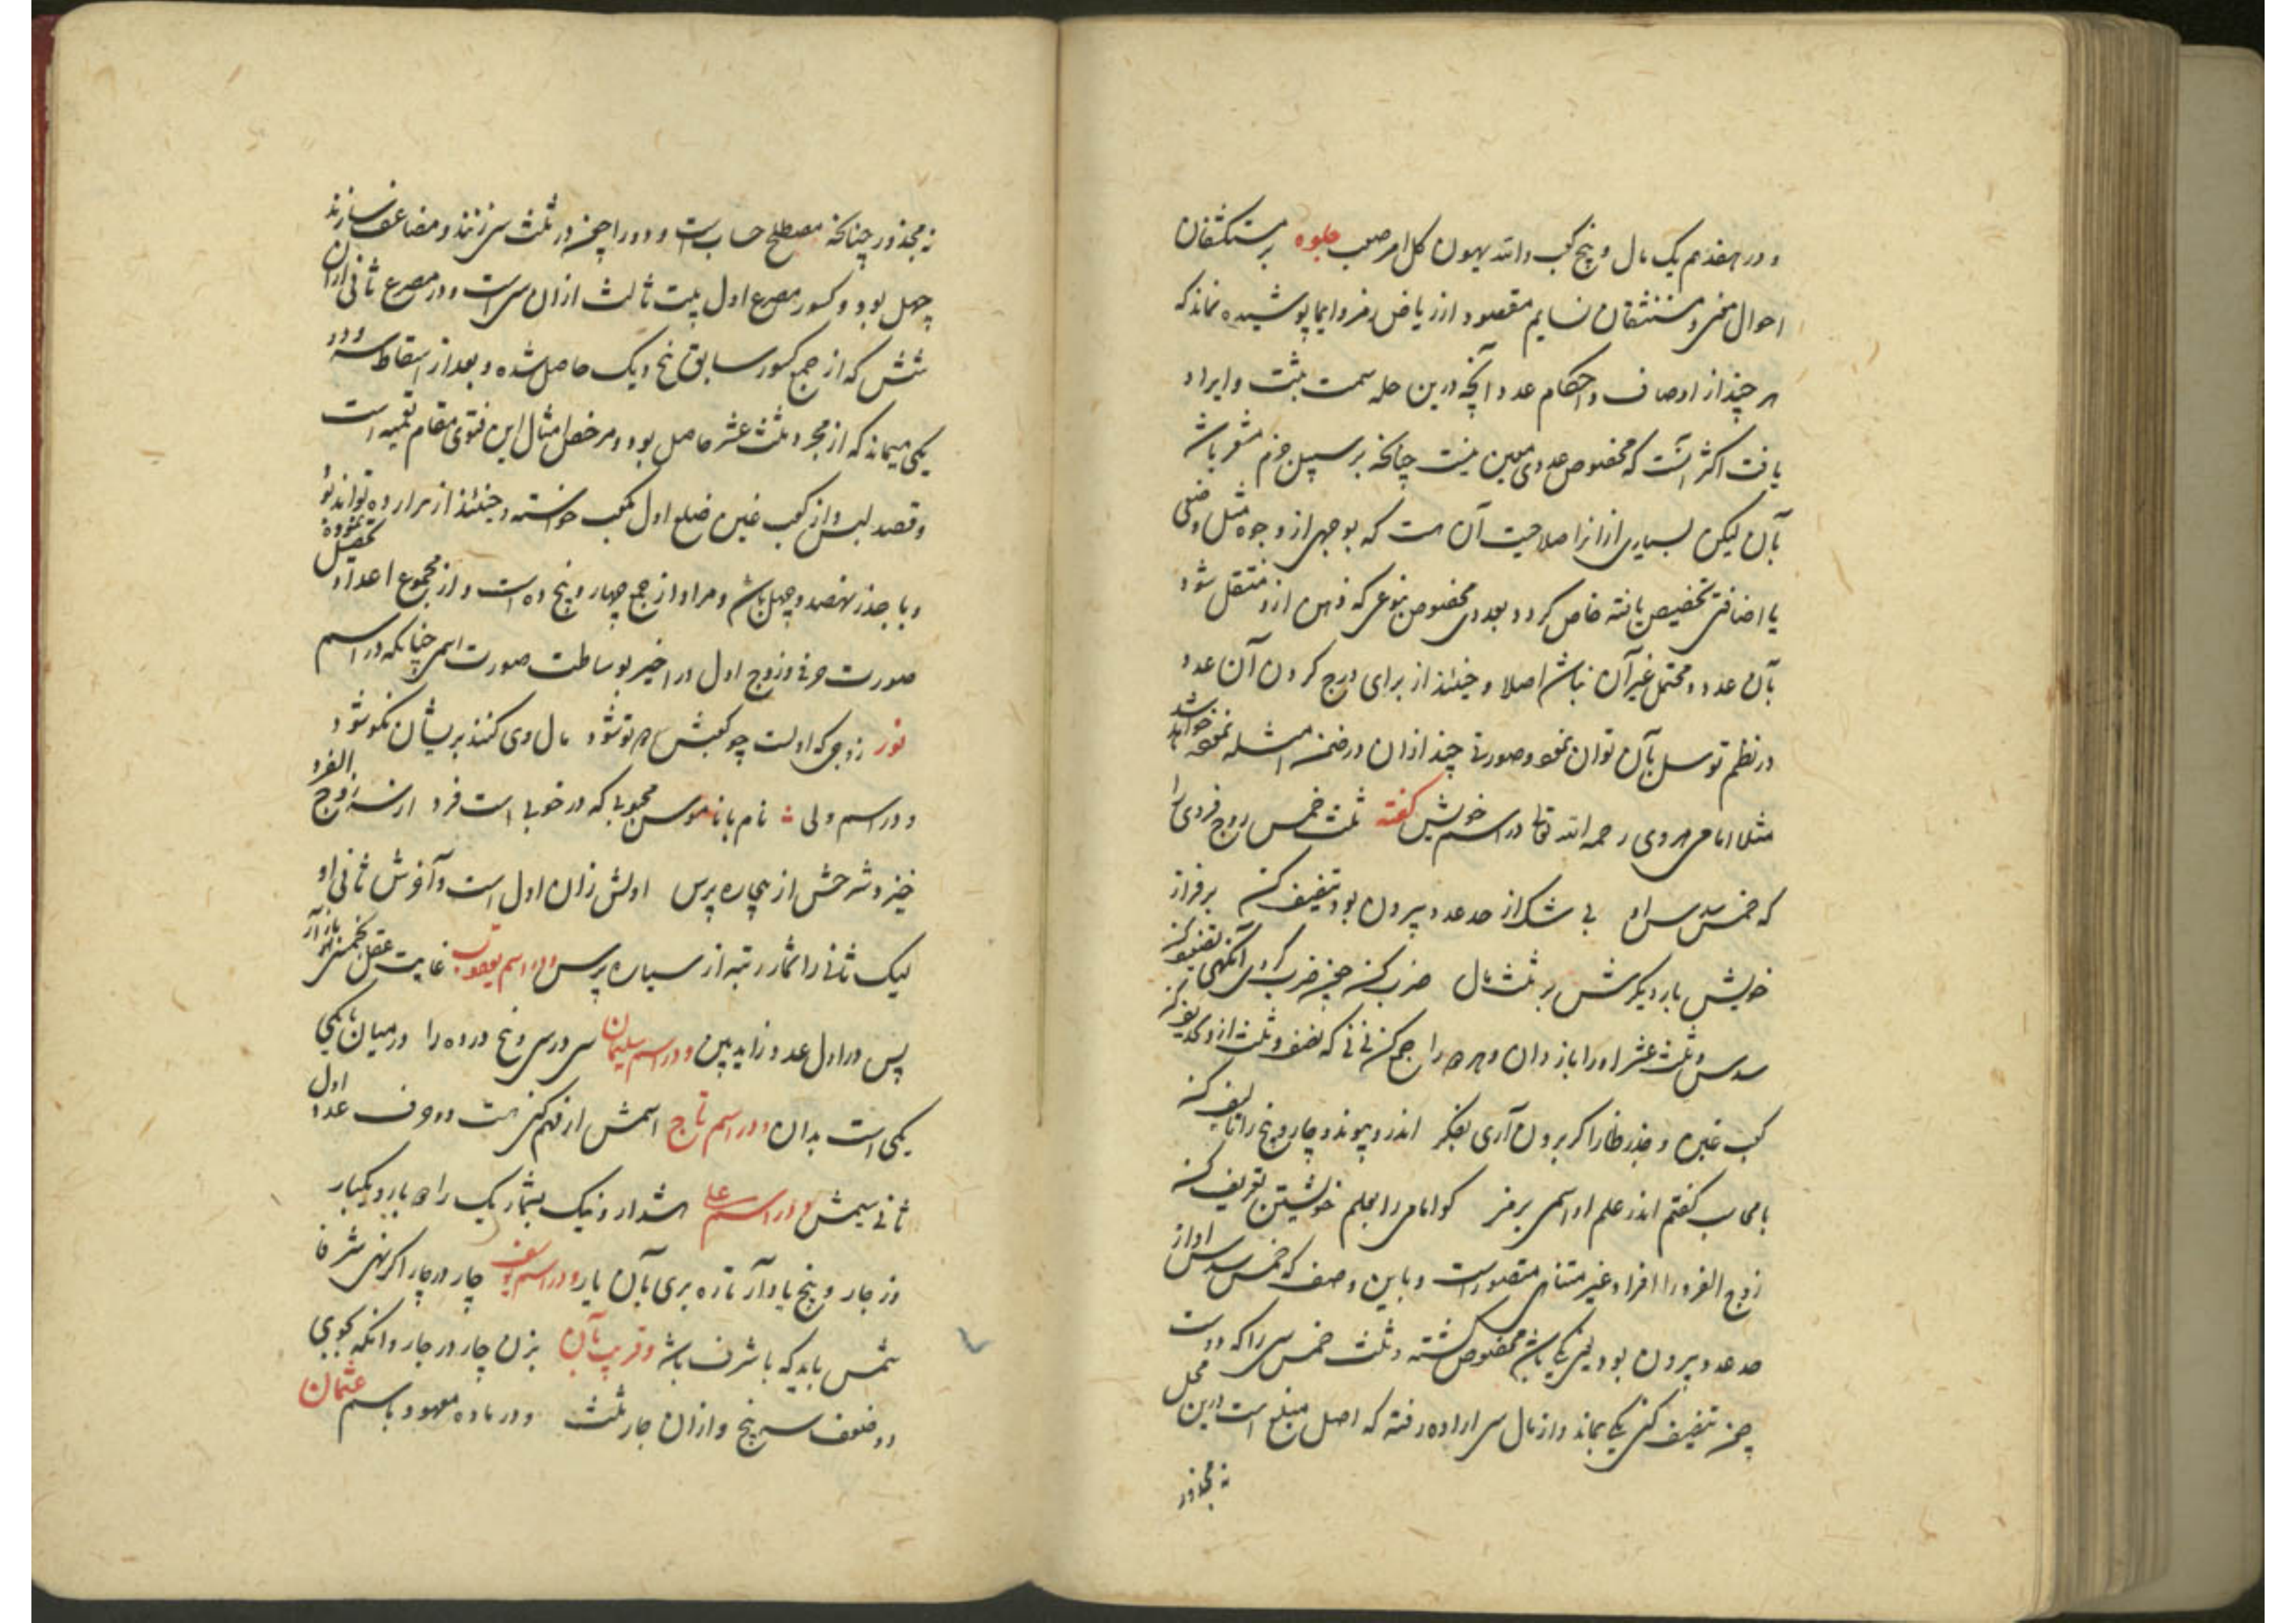 و در هفدهم یک مال و پنج کعب والله یهون کل امر صعب جلوه بر مستکشفان
احوال مخبر و مستنشقان نسایم مقصود از ریاض رمز و ایما پوشیده نماند که
هر چند از اوصاف و احکام عدد آنچه درین حله سمت ثبت و ایراد
یافت اکثر آنست که مخصوص عددی معین نیست چنانچه بر سبیل جزم مشعر باشد
بآن لیکن بسیاری از انرا صلاحیت آن هست که بوجهی از وجوه مثل وصفی
یا اضافتی تخصیص یافته خاص کردد بعددی مخصوص بنوعی که ذهن ازو منتقل شود
بآن عدد و محتمل غیر آن نباشد اصلا و حینئذ از برای درج کردن آن عدد
در نظم توسل بآن توان نمود و صورتی چند ازان در ضمن امثله نموده خواهد شد
مثلا امامی هروی رحمه الله تعالی در اسم خویش گفته ثلث خمس زوج فردی را
که خمس سدس او بی شک از حد عدد بیرون بود تنصیف کن بر فراز
خویش بار دیگرش بر ثلث مال ضرب کن چون ضرب کردی آنگهی تضعیف کن
سدس و ثلث عشر او را باز دان و هر دو را جمع کن نی نی که نصف و ثلث ازو
کعب غین و جذر ظا را کر برون آری بفکر اندرو پیوند و چار و پنج را تالیف کن
با محاسب گفتم اندر علم او اسمی برمز کو امامی را بعلم خویشتن تعریف کن
زوج الفرد را افراد غیر متناهی متصورست و باین وصف که خمس سدس او از
حد عدد بیرون بود یعنی یکی باشد مخصوص گشته و ثلث خمس سی را که دوست
چون تنصیف کنی یکی بماند و از مال سی اراده رفته که اصل مبلغ است درین محل
نه مجذور
نه مجذور چنانچه مصطلح حساب است و دو را چون در ثلث سی زنند و مضاعف سازند
چهل بود و کسور مصرع اول بیت ثالث ازان سی است و در مصرع ثانی ازان
شش که از جمع کسور سابق پنج و یک حاصل شده و بعد از اسقاط سه و دو
یکی میماند که از مجرد ثلث عشر حاصل بود و مرخص امثال این فتوی مقام تعمیه است
و قصد لبس و از کعب غین ضلع اول مکعب خواسته و حینئذ از هزار ده تواند بود
و با جذر نهصد و چهل باشد و مراد از جمع چهار و پنج ده است و از مجموع اعداد تحصیل نموده
صورت حرفی و زوج اول در اخیر بوساطت صورت اسمی چنانکه در اسم
نور زوجی که اولست چو کعبش توشود مال وی کنند بریشان نکو شود
و در اسم ولی نام با ناموس محبوبی که در خوبی است فرد از سه زوج الفرد
خیز و شرحش از بیچاره پرس اولش زان اول است و آخرش ثانی او
لیک ثانی را شمار رتبه از سیاره پرس و در اسم یعقوب غایت عقل
پس در اول عدد زاید ببین و در اسم سلیمان سی در سی و پنج در ده را در میان یکی
یکی است بدان و در اسم تاج اسمش از فهم کنی هست دو حرف عدد اول
ثانی سیمش و در اسم علی هشدار و نیک بشمار یک را دو بار و یکبار
وز چار و پنج یاد آر تا ره بری بآن یار و در اسم یوسف چار در چار اگر نهی شرفا
شمس باید که با شرف باشد و قریب بآن بزن چار در چار وانگه بجوی
دو ضعف سه پنج و ازان چار ثلث و در ماده معهود باسم عثمان